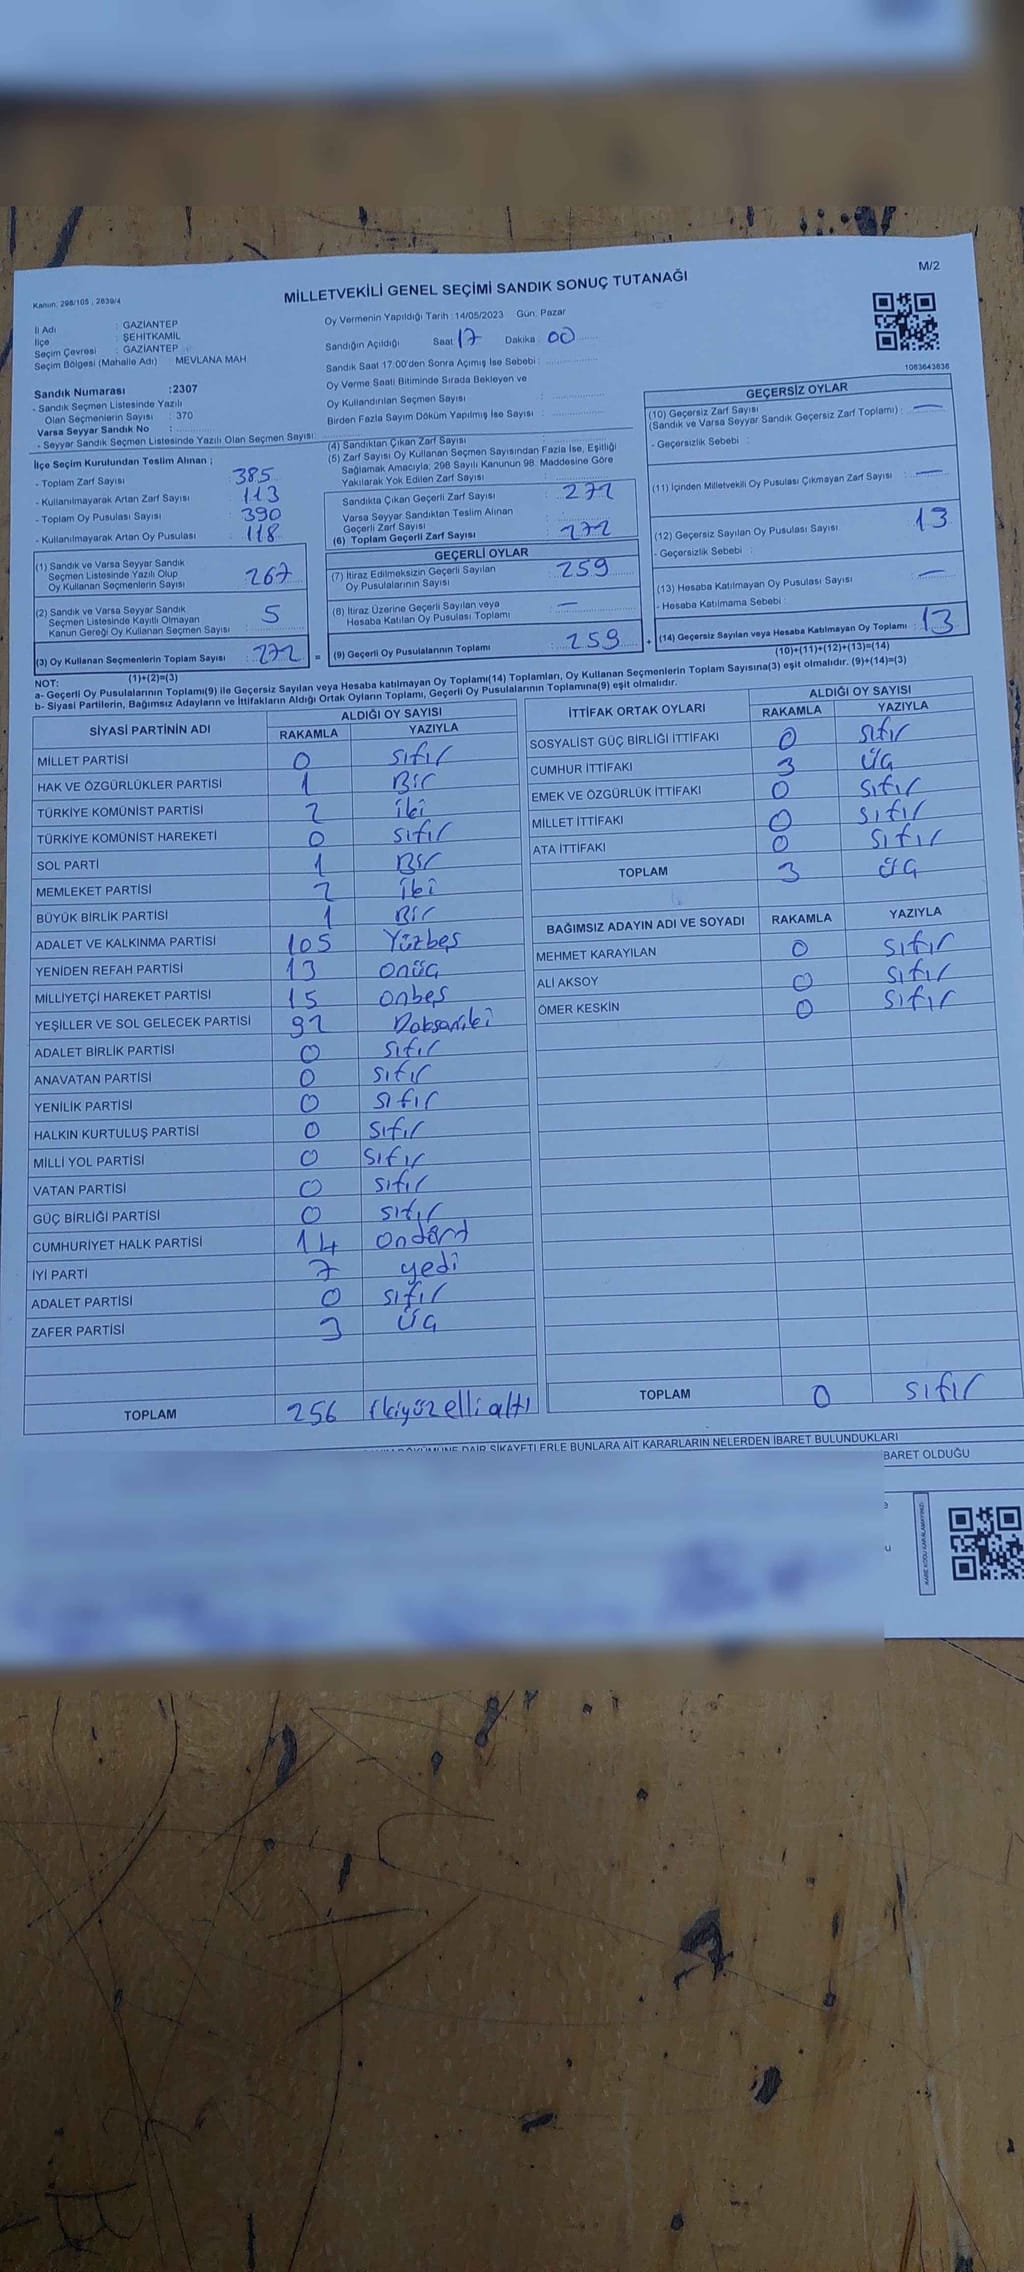 M/2
Kanun: 298/105 , 2839/4
MİLLETVEKİLİ GENEL SEÇİMİ SANDIK SONUÇ TUTANAĞI
1063643636
İl Adı : GAZİANTEP
İlçe : ŞEHİTKAMİL
Seçim Çevresi : GAZİANTEP
Seçim Bölgesi (Mahalle Adı) : MEVLANA MAH.
Sandık Numarası :2307
- Sandık Seçmen Listesinde Yazılı
Olan Seçmenlerin Sayısı : 370
Varsa Seyyar Sandık No :
- Seyyar Sandık Seçmen Listesinde Yazılı Olan Seçmen Sayısı:
Oy Vermenin Yapıldığı Tarih : 14/05/2023 Gün: Pazar
Sandığın Açıldığı Saat: 17 Dakika : 00
Sandık Saat 17:00'den Sonra Açımış İse Sebebi :
Oy Verme Saati Bitiminde Sırada Bekleyen ve
Oy Kullandırılan Seçmen Sayısı :
Birden Fazla Sayım Döküm Yapılmış İse Sayısı :
İlçe Seçim Kurulundan Teslim Alınan ;
- Toplam Zarf Sayısı : 385
- Kullanılmayarak Artan Zarf Sayısı : 113
- Toplam Oy Pusulası Sayısı : 390
- Kullanılmayarak Artan Oy Pusulası : 118
(1) Sandık ve Varsa Seyyar Sandık
Seçmen Listesinde Yazılı Olup
Oy Kullanan Seçmenlerin Sayısı : 267
(2) Sandık ve Varsa Seyyar Sandık
Seçmen Listesinde Kayıtlı Olmayan
Kanun Gereği Oy Kullanan Seçmen Sayısı : 5
(3) Oy Kullanan Seçmenlerin Toplam Sayısı : 272
(1)+(2)=(3)
(4) Sandıktan Çıkan Zarf Sayısı :
(5) Zarf Sayısı Oy Kullanan Seçmen Sayısından Fazla İse, Eşitliği
Sağlamak Amacıyla; 298 Sayılı Kanunun 98. Maddesine Göre
Yakılarak Yok Edilen Zarf Sayısı :
Sandıkta Çıkan Geçerli Zarf Sayısı : 272
Varsa Seyyar Sandıktan Teslim Alınan
Geçerli Zarf Sayısı :
(6) Toplam Geçerli Zarf Sayısı : 272
GEÇERLİ OYLAR
(7) İtiraz Edilmeksizin Geçerli Sayılan
Oy Pusulalarının Sayısı : 259
(8) İtiraz Üzerine Geçerli Sayılan veya
Hesaba Katılan Oy Pusulası Toplamı : —
= (9) Geçerli Oy Pusulalarının Toplamı : 259
GEÇERSİZ OYLAR
(10) Geçersiz Zarf Sayısı
(Sandık ve Varsa Seyyar Sandık Geçersiz Zarf Toplamı) : —
- Geçersizlik Sebebi :
(11) İçinden Milletvekili Oy Pusulası Çıkmayan Zarf Sayısı : —
(12) Geçersiz Sayılan Oy Pusulası Sayısı : 13
- Geçersizlik Sebebi :
(13) Hesaba Katılmayan Oy Pusulası Sayısı : —
- Hesaba Katılmama Sebebi :
+ (14) Geçersiz Sayılan veya Hesaba Katılmayan Oy Toplamı : 13
(10)+(11)+(12)+(13)=(14)
NOT:
a- Geçerli Oy Pusulalarının Toplamı(9) ile Geçersiz Sayılan veya Hesaba katılmayan Oy Toplamı(14) Toplamları, Oy Kullanan Seçmenlerin Toplam Sayısına(3) eşit olmalıdır. (9)+(14)=(3)
b- Siyasi Partilerin, Bağımsız Adayların ve İttifakların Aldığı Ortak Oyların Toplamı, Geçerli Oy Pusulalarının Toplamına(9) eşit olmalıdır.
SİYASİ PARTİNİN ADI ALDIĞI OY SAYISI
RAKAMLA YAZIYLA
MİLLET PARTİSİ 0 sıfır
HAK VE ÖZGÜRLÜKLER PARTİSİ 1 Bir
TÜRKİYE KOMÜNİST PARTİSİ 2 iki
TÜRKİYE KOMÜNİST HAREKETİ 0 sıfır
SOL PARTİ 1 Bir
MEMLEKET PARTİSİ 2 iki
BÜYÜK BİRLİK PARTİSİ 1 Bir
ADALET VE KALKINMA PARTİSİ 105 Yüzbeş
YENİDEN REFAH PARTİSİ 13 onüç
MİLLİYETÇİ HAREKET PARTİSİ 15 onbeş
YEŞİLLER VE SOL GELECEK PARTİSİ 92 Doksaniki
ADALET BİRLİK PARTİSİ 0 sıfır
ANAVATAN PARTİSİ 0 sıfır
YENİLİK PARTİSİ 0 sıfır
HALKIN KURTULUŞ PARTİSİ 0 sıfır
MİLLİ YOL PARTİSİ 0 sıfır
VATAN PARTİSİ 0 sıfır
GÜÇ BİRLİĞİ PARTİSİ 0 sıfır
CUMHURİYET HALK PARTİSİ 14 ondört
İYİ PARTİ 7 yedi
ADALET PARTİSİ 0 sıfır
ZAFER PARTİSİ 3 üç
TOPLAM 256 ikiyüzellialtı
İTTİFAK ORTAK OYLARI ALDIĞI OY SAYISI
RAKAMLA YAZIYLA
SOSYALİST GÜÇ BİRLİĞİ İTTİFAKI 0 sıfır
CUMHUR İTTİFAKI 3 üç
EMEK VE ÖZGÜRLÜK İTTİFAKI 0 sıfır
MİLLET İTTİFAKI 0 sıfır
ATA İTTİFAKI 0 sıfır
TOPLAM 3 üç
BAĞIMSIZ ADAYIN ADI VE SOYADI RAKAMLA YAZIYLA
MEHMET KARAYILAN 0 sıfır
ALİ AKSOY 0 sıfır
ÖMER KESKİN 0 sıfır
TOPLAM 0 sıfır
DAİR ŞİKAYETLERLE BUNLARA AİT KARARLARIN NELERDEN İBARET BULUNDUKLARI
BARET OLDUĞU